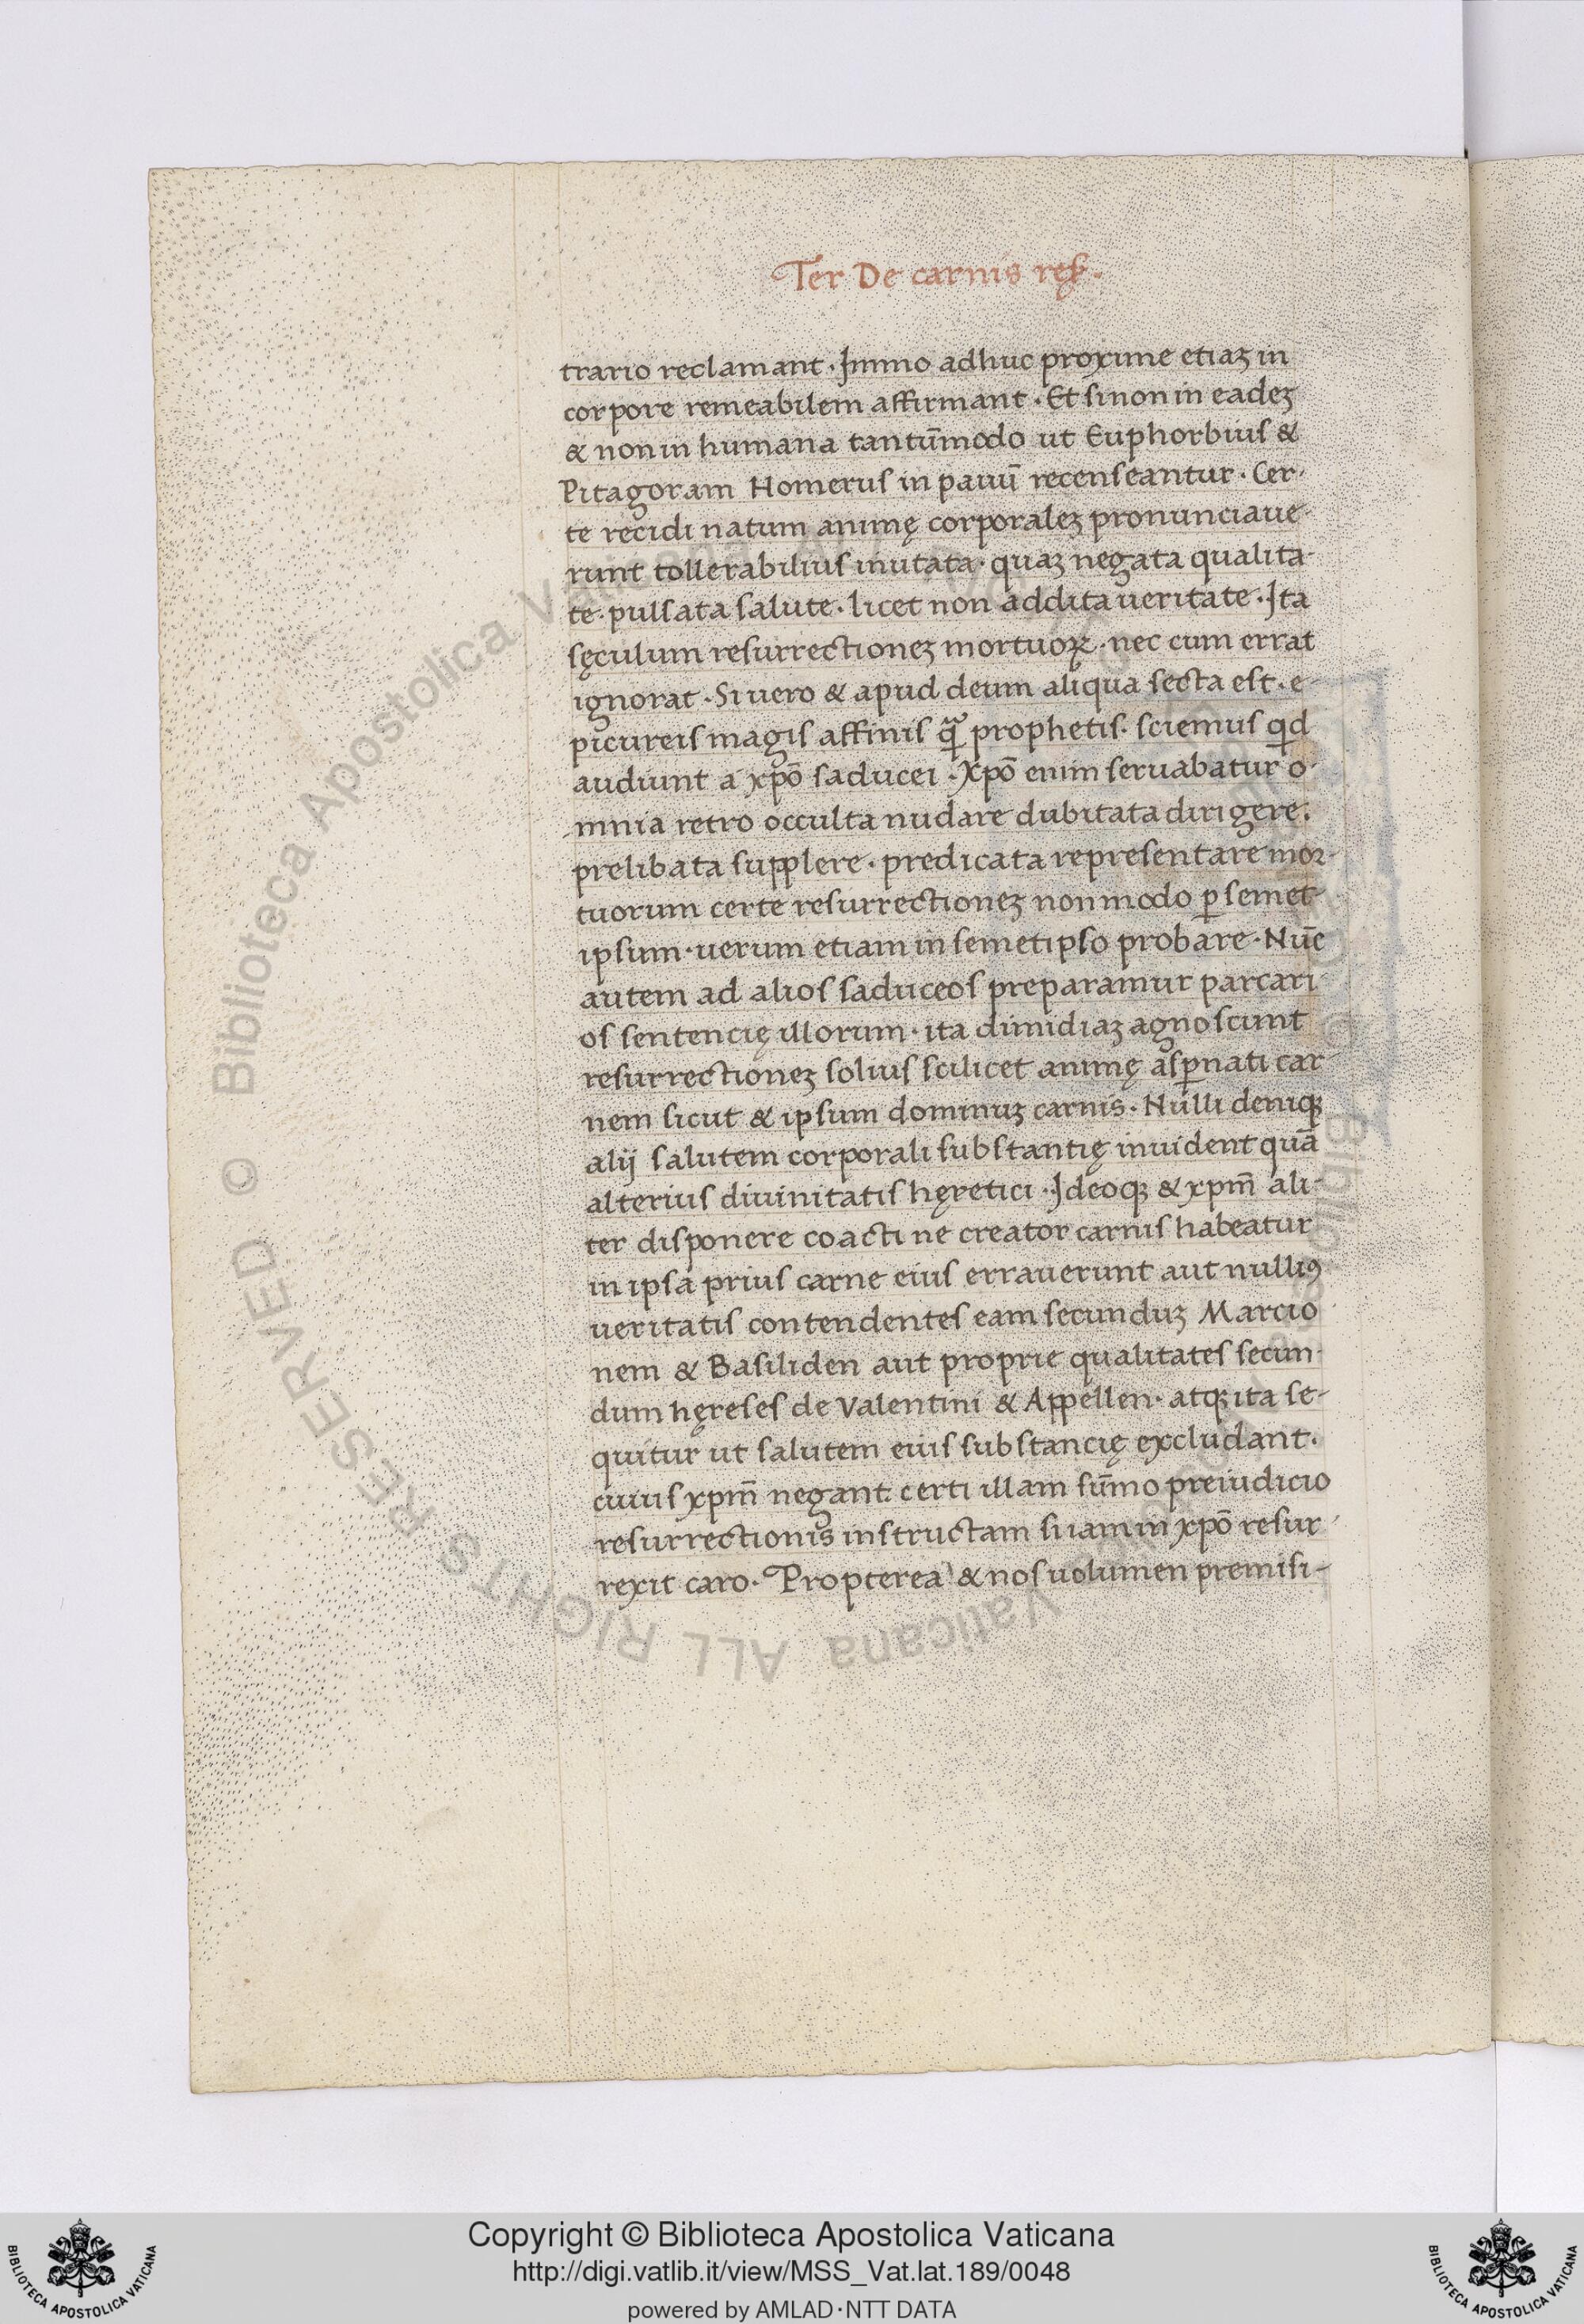 Ter De carnis res̄.
trario reclamant · Immo adhuc proxime etiaꝫ in
corpore remeabilem affirmant · Et si non in eadeꝫ
& non in humana tantūmodo ut Euphorbius &
Pitagoram Homerus in pauū recenseantur · Cer-
te recidi natum animę corporaleꝫ pronunciaue-
runt tollerabilius mutata · quaꝫ negata qualita-
te · pulsata salute · licet non addita ueritate · Ita
sęculum resurrectioneꝫ mortuoꝝ · nec cum errat
ignorat · Si uero & apud deum aliqua secta est · e-
picureis magis affinis qᷓ prophetis · sciemus qd
audiunt a xpō saducei · Xpō enim seruabatur o-
mnia retro occulta nudare dubitata dirigere.
prelibata supplere · predicata representare mor-
tuorum certe resurrectioneꝫ non modo ꝑ semet
ipsum · uerum etiam in semetipso probare · Nūc
autem ad alios saduceos preparamur parcari-
os sentencię illorum · ita dimidiaꝫ agnoscunt
resurrectioneꝫ solius scilicet animę asꝑnati car-
nem sicut & ipsum dominuꝫ carnis · Nulli deniqꝫ
alij salutem corporali substantię inuident quā
alterius diuinitatis hęretici · Ideoqꝫ & xpm̄ ali-
ter disponere coacti ne creator carnis habeatur
in ipsa prius carne eius errauerunt aut nulliꝰ
ueritatis contendentes eam secunduꝫ Marcio
nem & Basiliden aut proprie qualitates secun-
dum hęreses de Valentini & Appellen · atqꝫ ita se-
quitur ut salutem eius substancię excludant ·
cuius xpm̄ negant. certi illam sūmo preiudicio
resurrectionis instructam si iam in xpō resur-
rexit caro · Propterea & nos uolumen premisi-
© Biblioteca Apostolica Vaticana ALL RIGHTS RESERVED
Copyright © Biblioteca Apostolica Vaticana
http://digi.vatlib.it/view/MSS_Vat.lat.189/0048
powered by AMLAD·NTT DATA
BIBLIOTECA APOSTOLICA VATICANA
BIBLIOTECA APOSTOLICA VATICANA